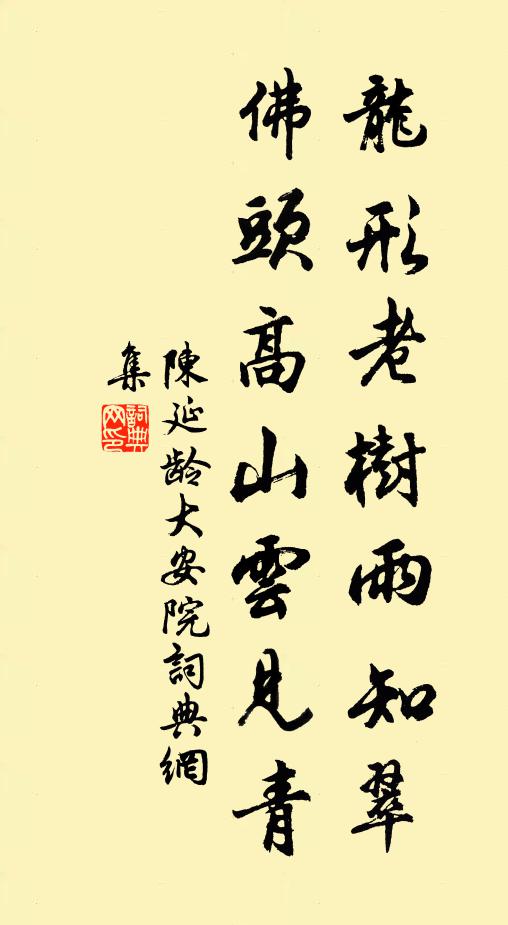 龍形老樹雨知翠
佛頭高山雲見青
陳延龄大安院詞典網
集
詞典网印